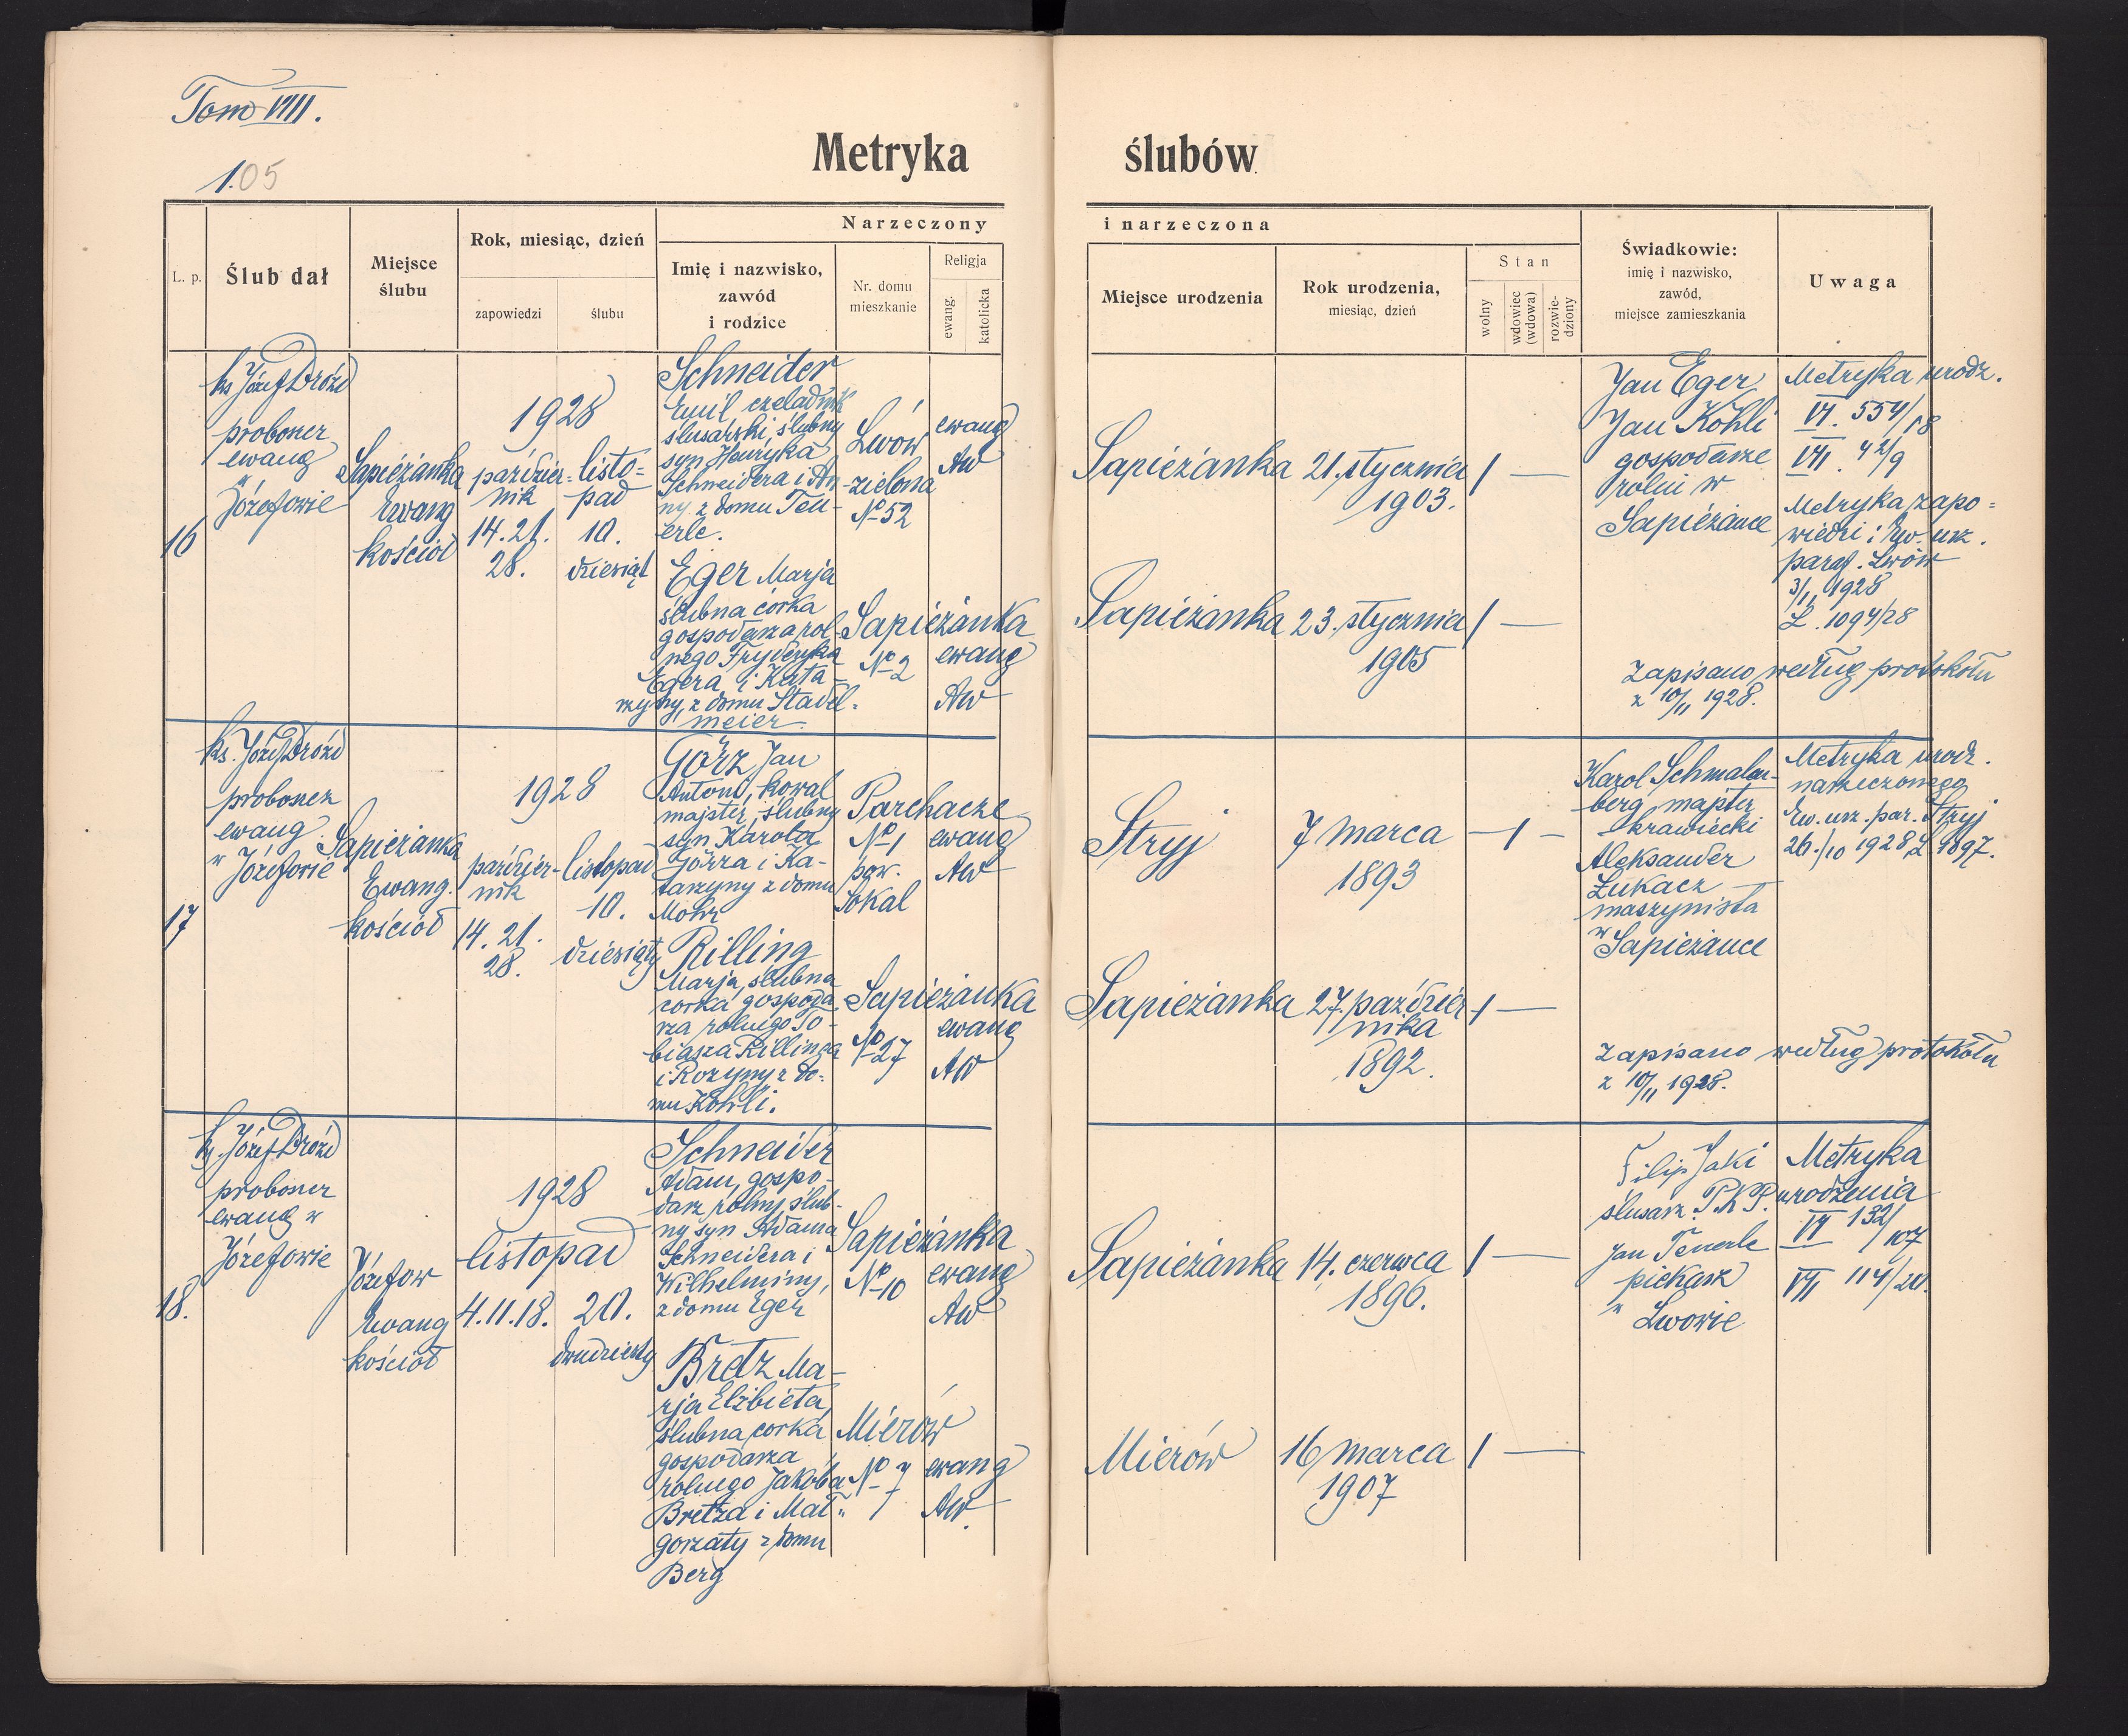 Tom VIII.
1.05
Metryka ślubów
L. p.
Ślub dał
Miejsce
ślubu
Rok, miesiąc, dzień
zapowiedzi
ślubu
Narzeczony i narzeczona
Imię i nazwisko,
zawód
i rodzice
Nr. domu
mieszkanie
Religja
ewang.
katolicka
Miejsce urodzenia
Rok urodzenia,
miesiąc, dzień
Stan
wolny
wdowiec
(wdowa)
rozwie-
dziony
Świadkowie:
imię i nazwisko,
zawód,
miejsce zamieszkania
Uwaga
16
ks Józef Dróżd
proboszcz
ewang
w
Józefowie
Sapieżanka
Ewang
kościół
1928
paździer=
nik
14. 21.
28.
listo=
pad
10.
dziesiąt
Schneider
Emil czeladnik
ślusarski, ślubny
syn Henryka
Schneidera i An-
ny z domu Teu-
erle.
Lwów
zielona
No 52
ewang
AW
Sapieżanka
21. stycznia
1903.
1 —
Jan Eger
Jan Köhli
gospodarze
rolni w
Sapieżance
Metryka urodz.
VI. 554/18
VII. 42/9
Metryka zapo=
wiedzi i Ew. urz.
paraf. Lwów
3/11 1928
L. 1094/28
Eger Marja
ślubna córka
gospodarza rol-
nego Fryderyka
Egera i Kata-
rzyny, z domu Stadel-
meier.
Sapieżanka
No 2
ewang
AW
Sapieżanka
23. stycznia
1905
1 —
Zapisano według protokołu
z 10/11 1928.
17
ks. Józef Dróżd
proboszcz
ewang.
w Józefowie
Sapieżanka
Ewang.
kościół
1928
paździer-
nik
14. 21.
28.
listopad
10.
dziesiąty
Görz Jan
Antoni, kowal
majster, ślubny
syn Karola
Görza i Ka-
tarzyny z domu
Mohr
Parchacze
No 1
pow.
Sokal
ewang
AW
Stryj
7 marca
1893
— 1 —
Karol Schmalen-
berg majster
krawiecki
Aleksander
Łukacz
maszynista
w
Sapieżance
Metryka urodz.
narzeczonego
Ew. urz. par. Stryj
26./10 1928 L 1897.
Rilling
Marja, ślubna
córka gospoda
rza rolnego To-
biasza Rillinga
i Rozyny z do-
mu Köhli.
Sapieżanka
No 27
ewang
AW
Sapieżanka
27. paździer
nika
1892.
1 —
Zapisano według protokółu
z 10/11 1928.
18.
ks. Józef Dróżd
proboszcz
ewang w
Józefowie
Józefow
Ewang
kościół
1928
listopad
4. 11. 18.
20.
dwudziesty
Schneider
Adam, gospo-
darz rolny, ślub-
ny syn Adama
Schneidera i
Wilhelminy,
z domu Eger
Sapieżanka
No 10
ewang
AW
Sapieżanka
14. czerwca
1896.
1 —
Filip Jaki
ślusarz P.K.P.
Jan Teuerle
piekarz
w
Lwowie
Metryka
urodzenia
VI 132/107
VII 114/20.
Bretz Ma-
rja Elżbieta,
ślubna córka
gospodarza
rolnego Jakóba
Bretza i Mał-
gorzaty z domu
Berg
Mierów
No 7
ewang
AW.
Mierów
16 marca
1907
1 —